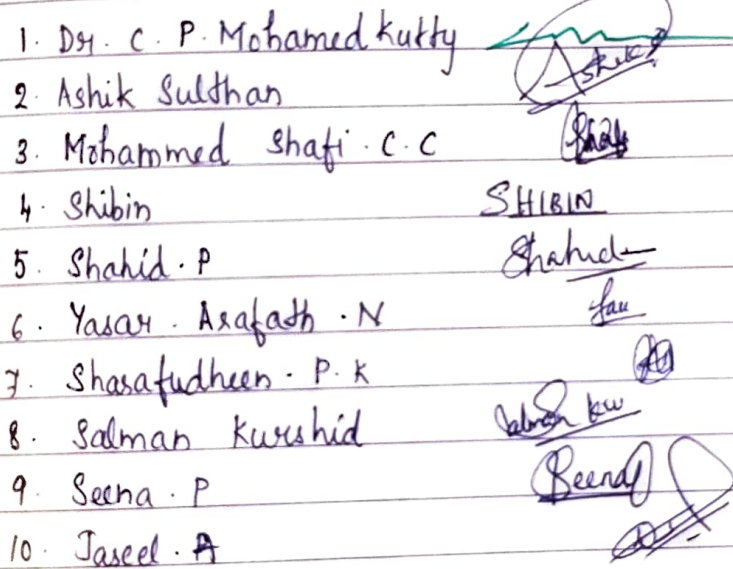 1. Dr. C. P. Mohamed kutty
2. Ashik Sulthan Ashik
3. Mohammed Shafi . C . C
4. Shibin SHIBIN
5. Shahid . P Shahid
6. Yasar . Arafath . N
7. Sharafudheen . P. K
8. Salman Kurshid Salman
9. Seena . P Seena
10. Jaseel . A